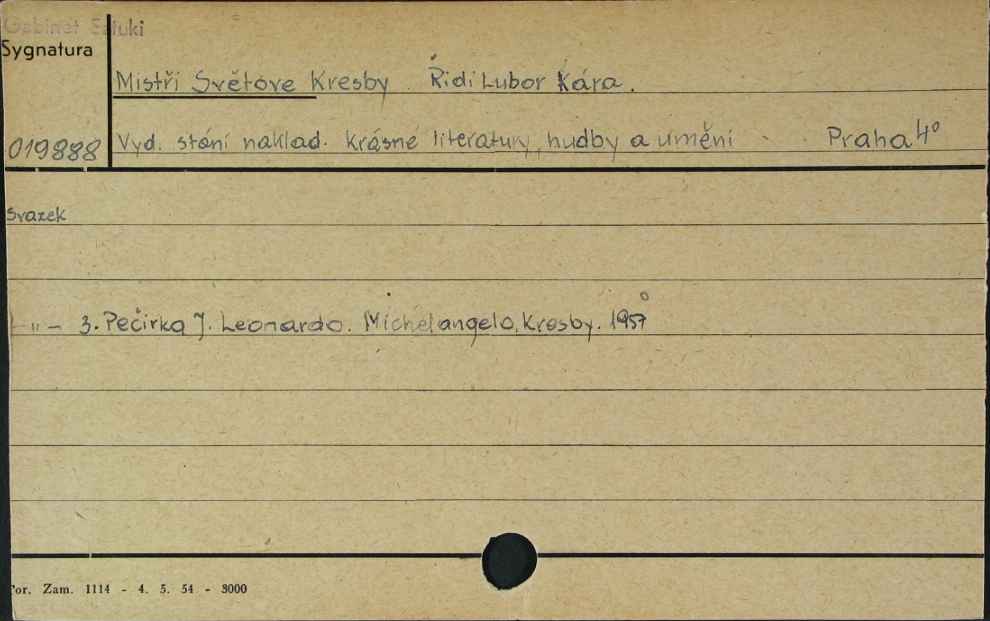 Gabinet Sztuki
Sygnatura
Mistři Světove Kresby. Řídí Lubor Kára.
019888
Vyd. stání naklad. krásné literatury, hudby a umění Praha 4°
Svazek
-„- 3. Pečirka J. Leonardo. Michelangelo, Kresby. 1957
Zam. 1114 - 4. 5. 54 - 3000